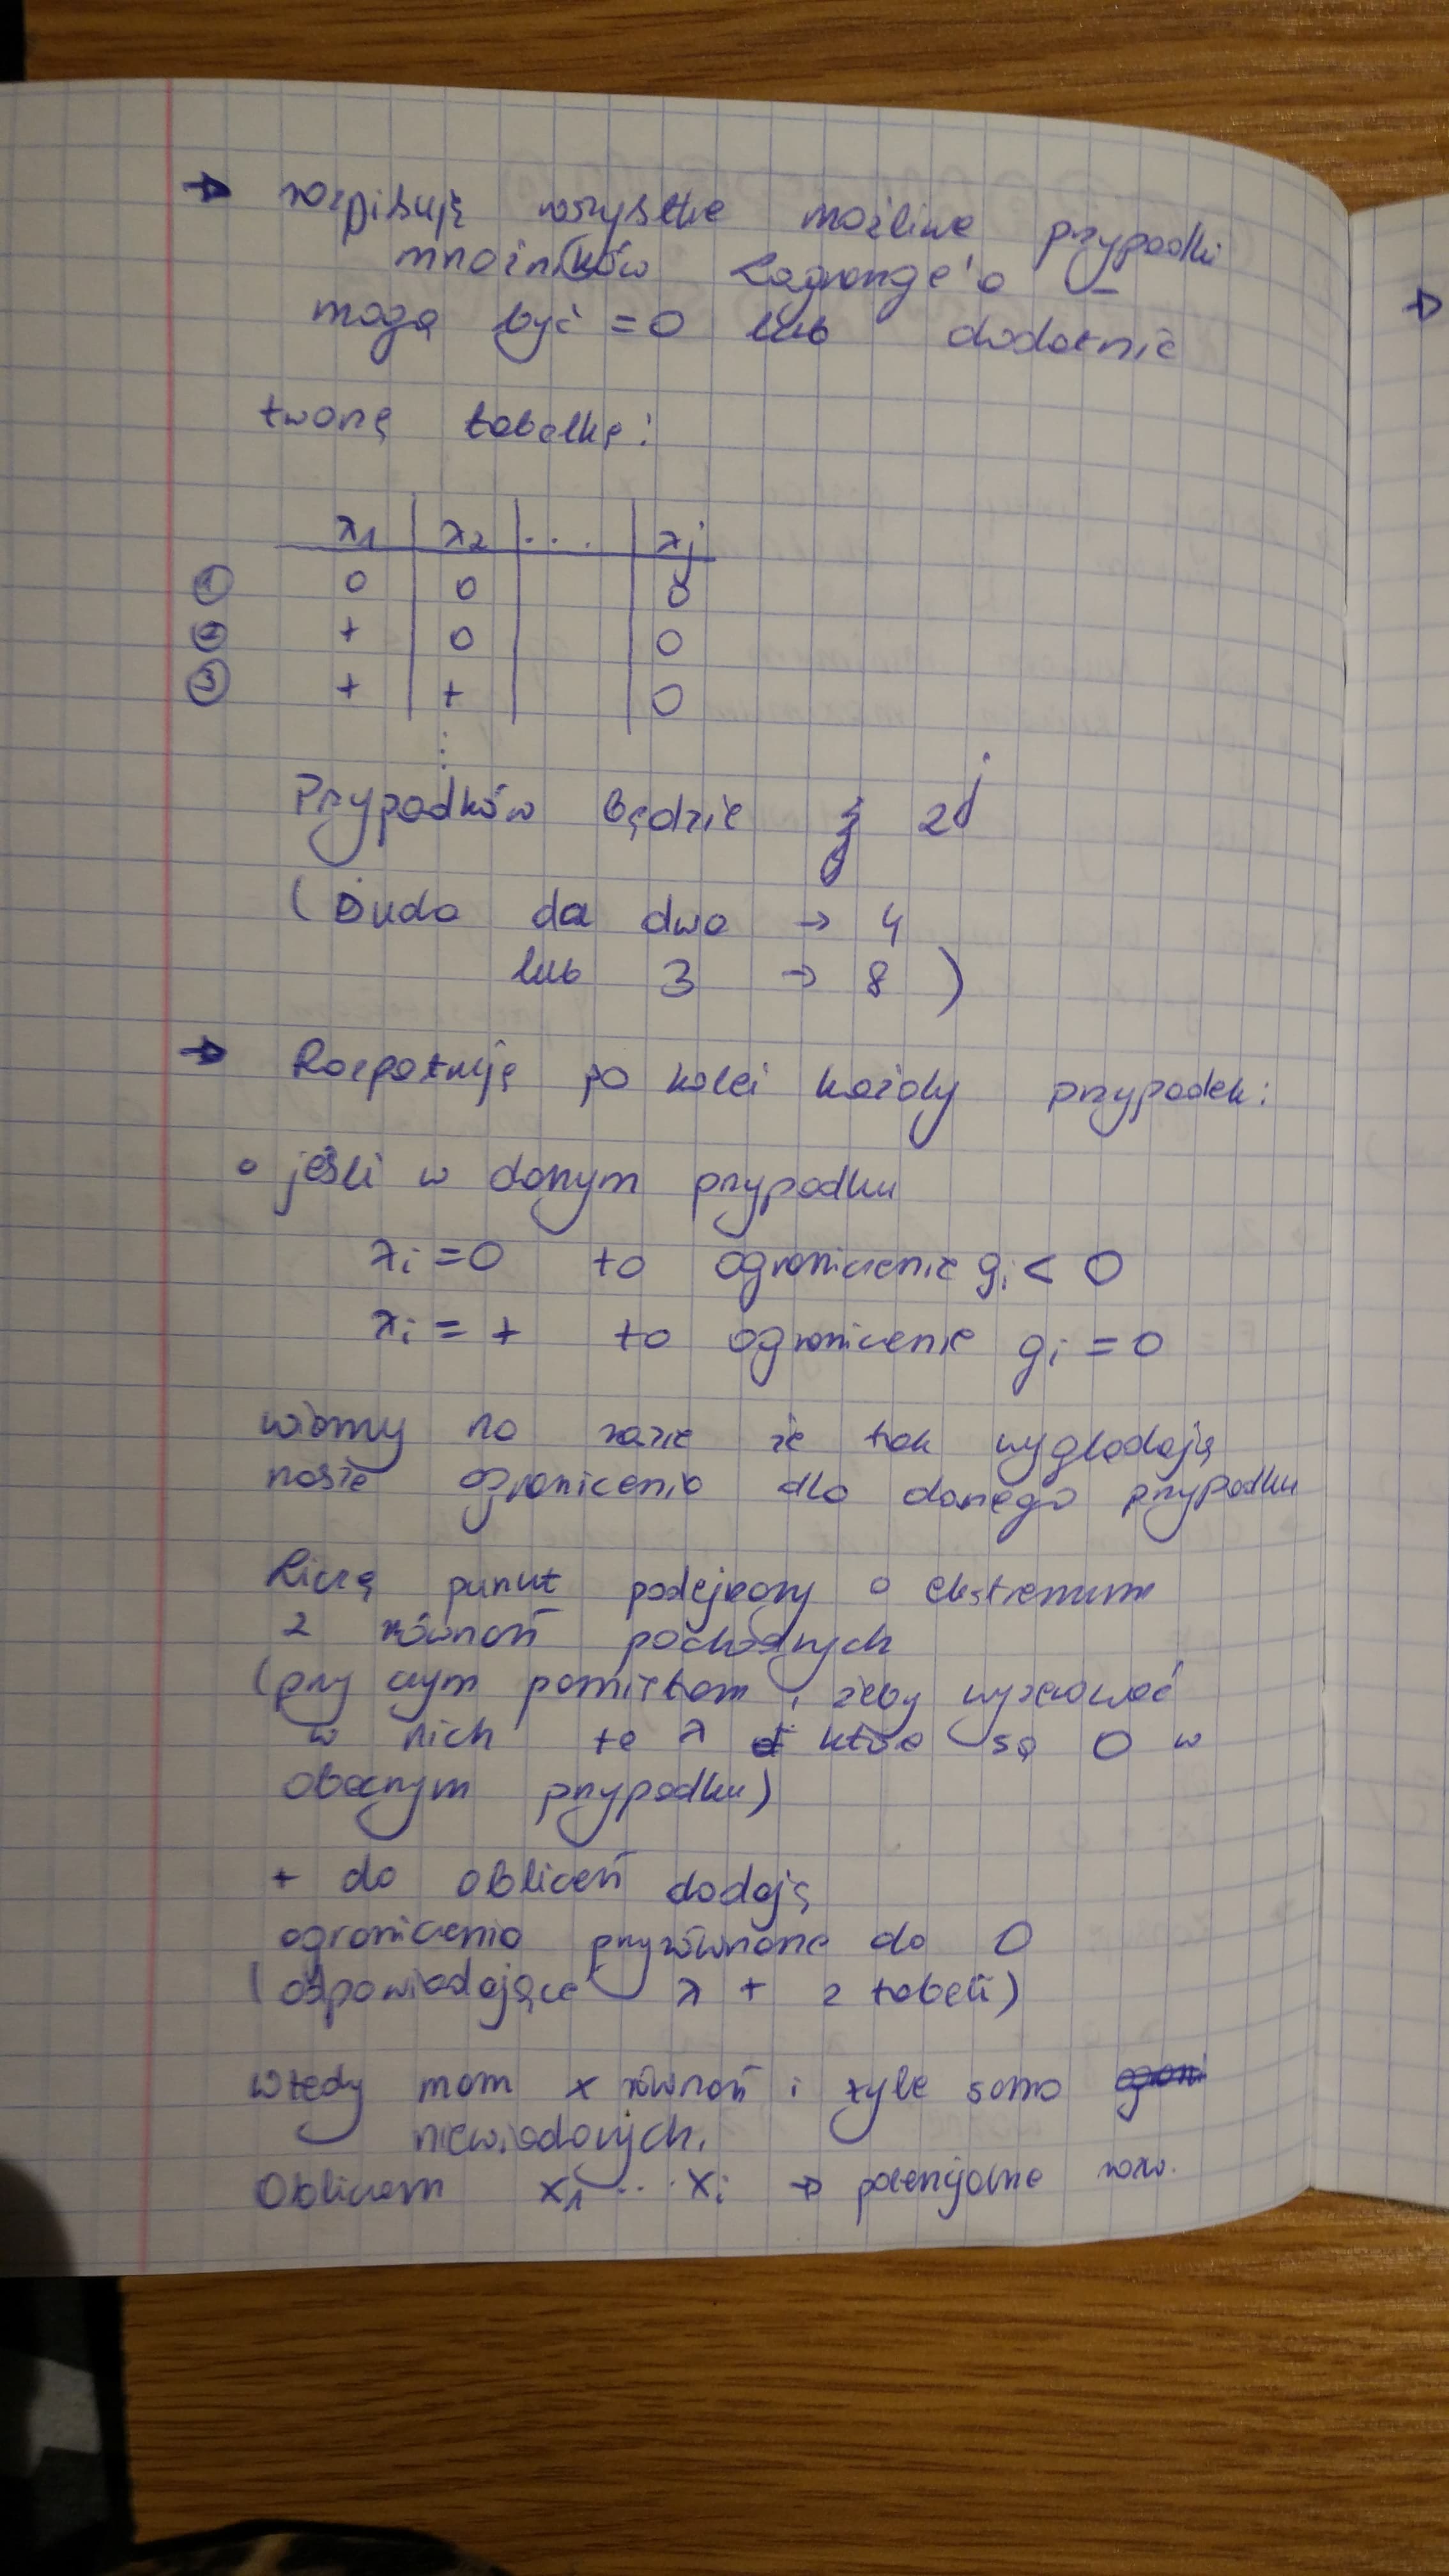 → rozpisuję wszystkie możliwe przypadki
mnożników Lagrange'a –
mogą być =0 lub dodatnie
tworzę tabelkę:
λ1 | λ2 | ... | λj
① 0 | 0 | | 0
② + | 0 | | 0
③ + | + | | 0
⋮
Przypadków będzie 2^j
(Duda da dwa → 4
lub 3 → 8 )
→ Rozpatruję po kolei każdy przypadek:
• jeśli w danym przypadku
λi = 0 to ograniczenie gi < 0
λi = + to ograniczenie gi = 0
wiemy na razie że tak wyglądają
nasze ograniczenia dla danego przypadku
Liczę punkt podejrzany o ekstremum
z równań pochodnych
(przy czym pamiętam, żeby wyzerować
w nich te λ które są 0 w
obecnym przypadku)
+ do obliczeń dodaję
ograniczenia przyrównane do 0
(odpowiadające λ + z tabeli)
wtedy mam x równań i tyle samo
niewiadowych.
Obliczam x1 ... xi → potencjalne rozw.